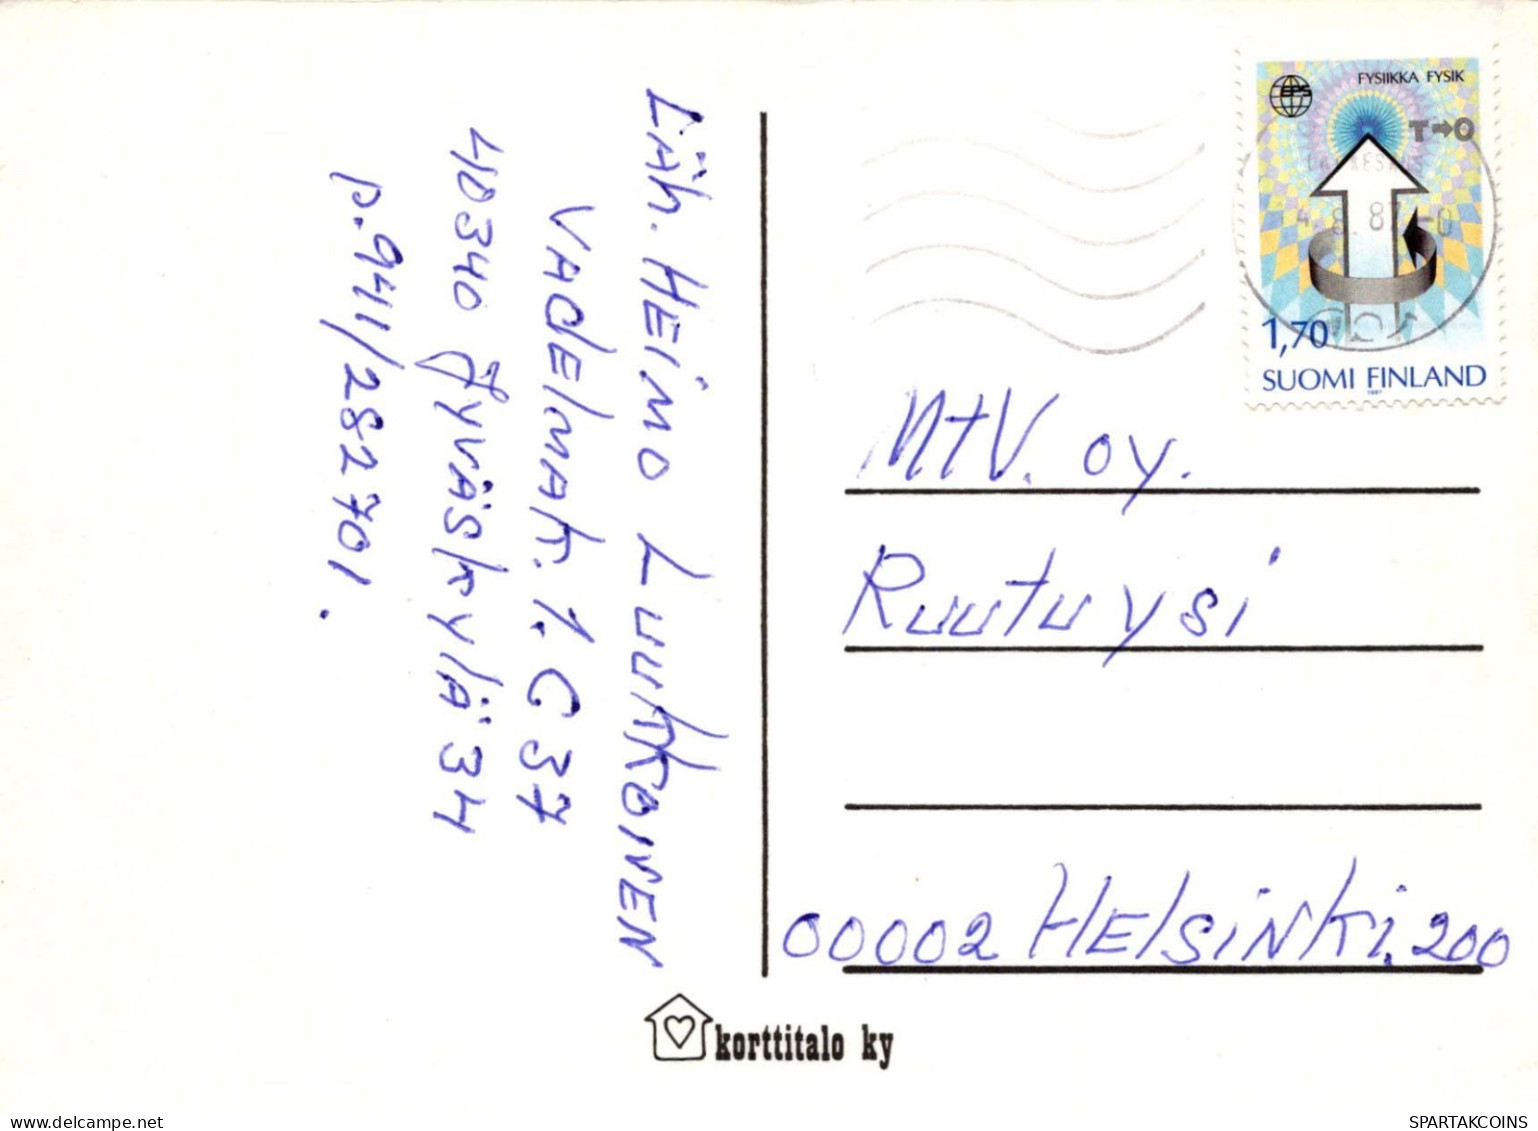 Läh. HEiMO LuukkoiNEN
VAdElmAk. 1. C 37
40340 JyväskylÄ 34
p. 941/282701.
EPS
FYSIIKKA FYSIK
T→O
4.8.87-0
1,70
SUOMI FINLAND
1987
MTV. oy.
Ruutuysi
00002 HElsiNki. 200
korttitalo ky
SPARTAKCOINS